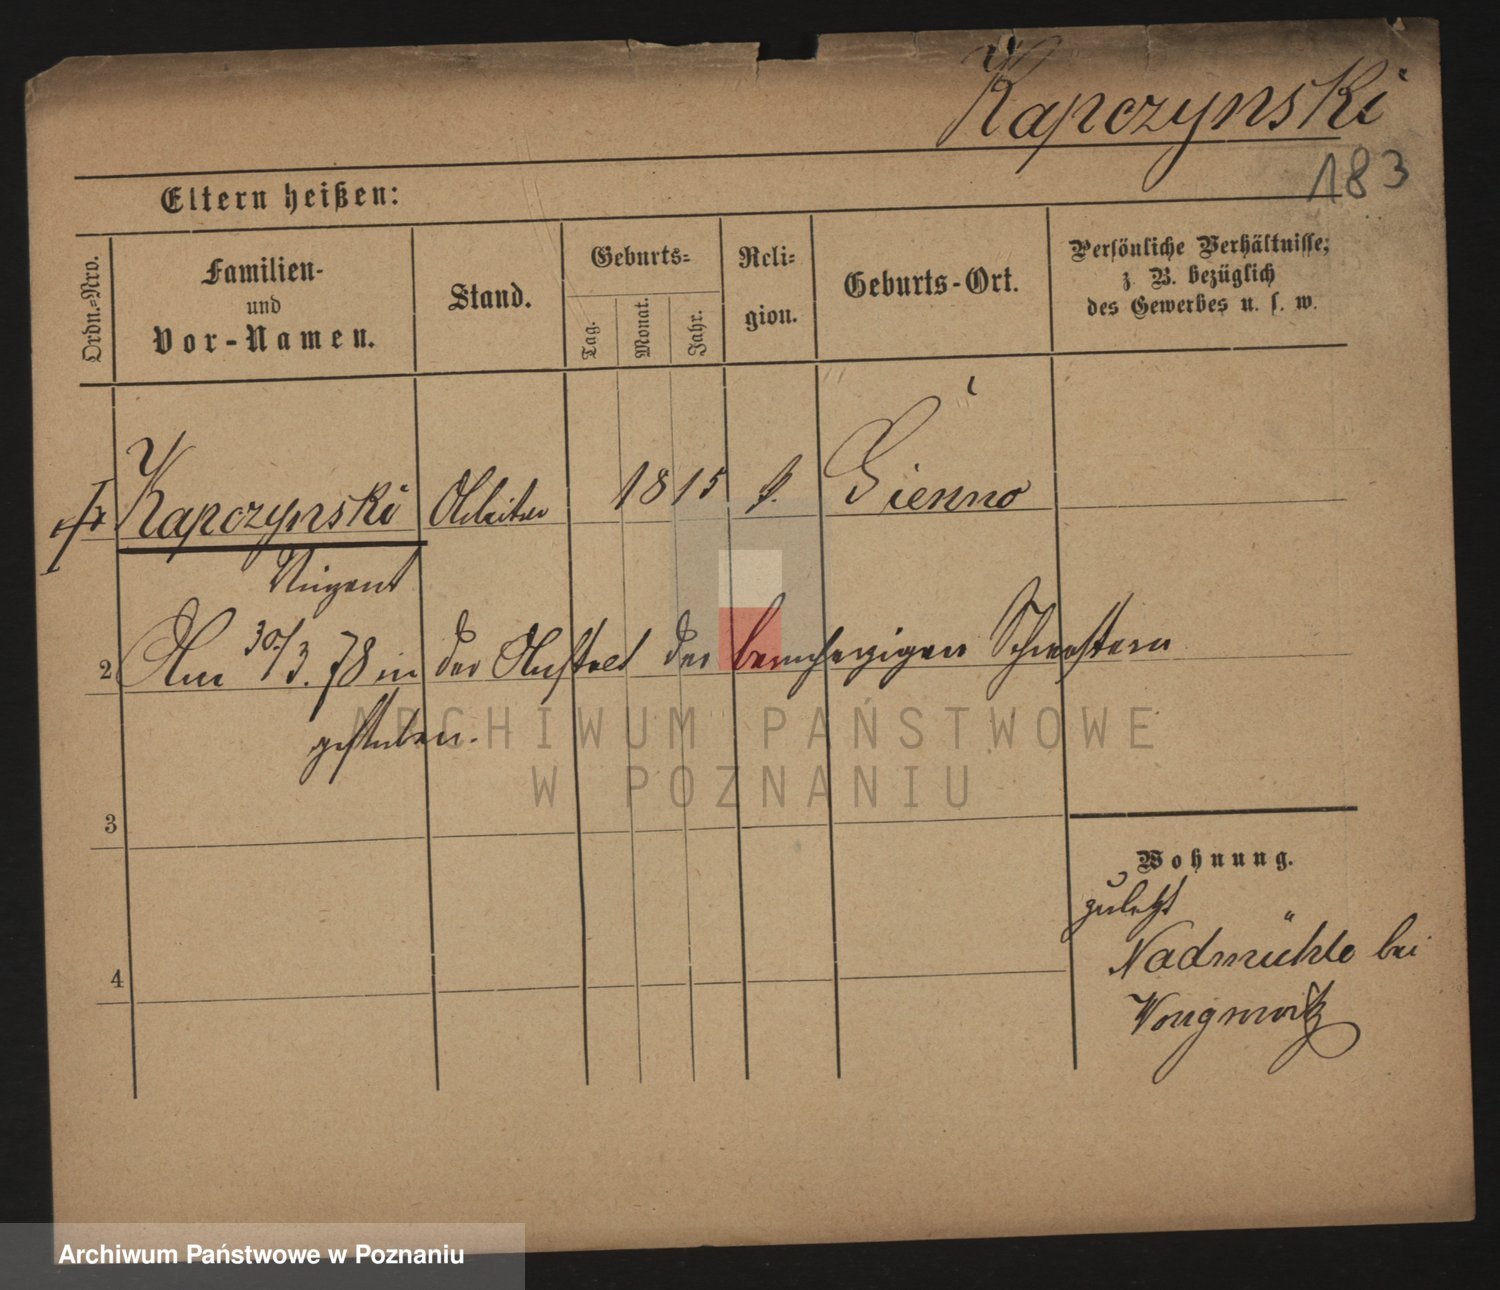 Kapczynski
183
Eltern heißen:
Ordn.-Nro.
Familien-
und
Vor-Namen.
Stand.
Geburts-
Tag.
Monat.
Jahr.
Reli-
gion.
Geburts-Ort.
Persönliche Verhältnisse;
z. B. bezüglich
des Gewerbes u. s. w.
Kapczynski Arbeiter 1815 k.
2 Am 30/3. 78 in der Anstalt der barmherzigen Schwestern
gestorben.
3
4
Wohnung.
zuletzt
bei
ARCHIWUM PAŃSTWOWE
W POZNANIU
Archiwum Państwowe w Poznaniu